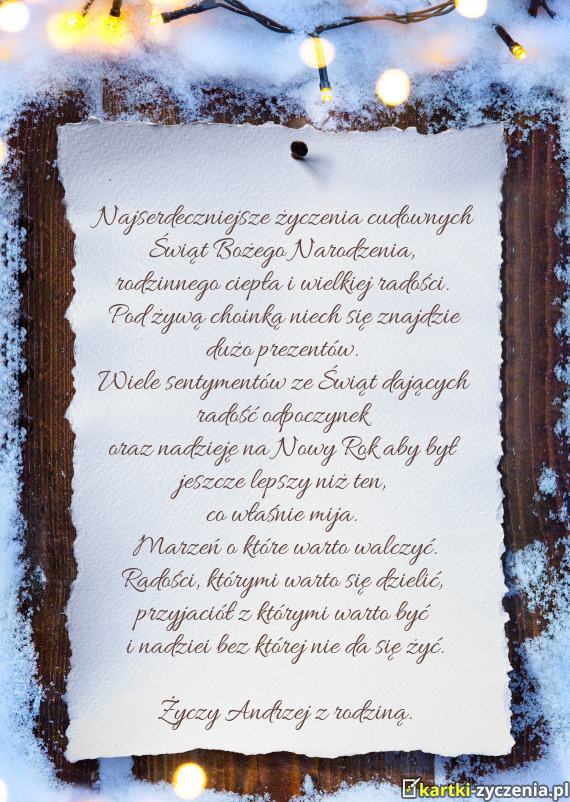 Najserdeczniejsze życzenia cudownych
Świąt Bożego Narodzenia,
rodzinnego ciepła i wielkiej radości.
Pod żywą choinką niech się znajdzie
dużo prezentów.
Wiele sentymentów ze Świąt dających
radość odpoczynek
oraz nadzieję na Nowy Rok aby był
jeszcze lepszy niż ten,
co właśnie mija.
Marzeń o które warto walczyć.
Radości, którymi warto się dzielić,
przyjaciół z którymi warto być
i nadziei bez której nie da się żyć.
Życzy Andrzej z rodziną.
kartki-zyczenia.pl